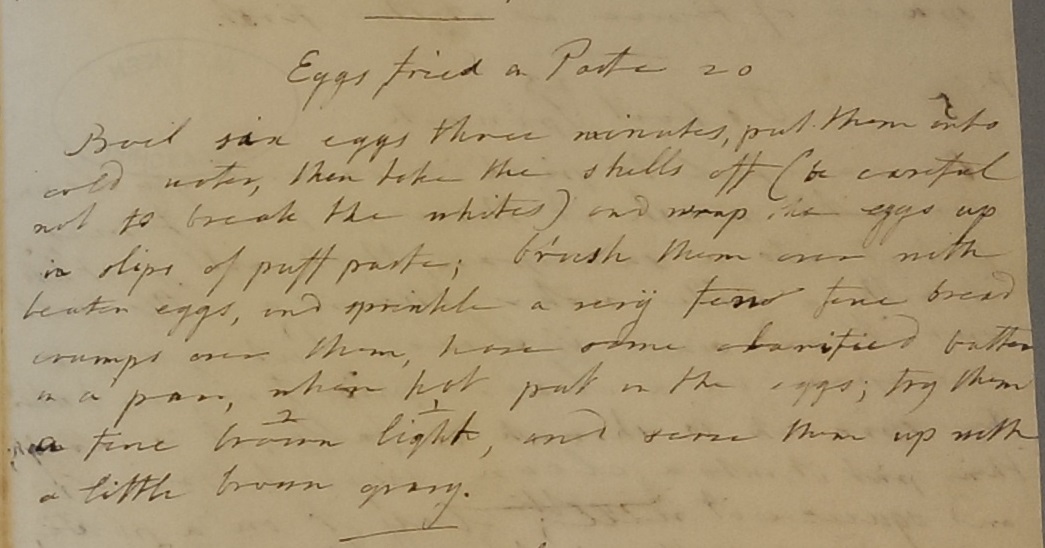 Eggs fried in Paste 20
Broil six eggs three minutes, put them into
cold water, then take the shells off (be careful
not to break the whites) and wrap the eggs up
in slips of puff paste; brush them over with
beaten eggs, and sprinkle a very few fine bread
crumps over them, have some clarified butter
in a pan, when hot put in the eggs; fry them
a fine brown light, and serve them up with
2 1
a little brown gravy.